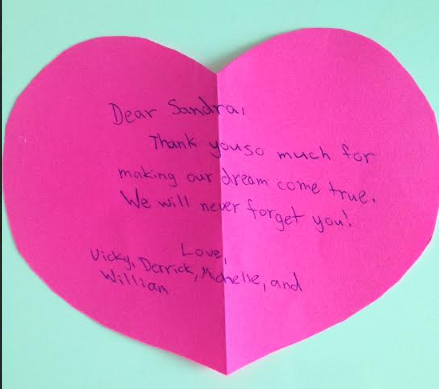 Dear Sandra,
Thank you so much for
making our dream come true.
We will never forget you!
Love,
Vicky, Derrick, Michelle, and
Willian